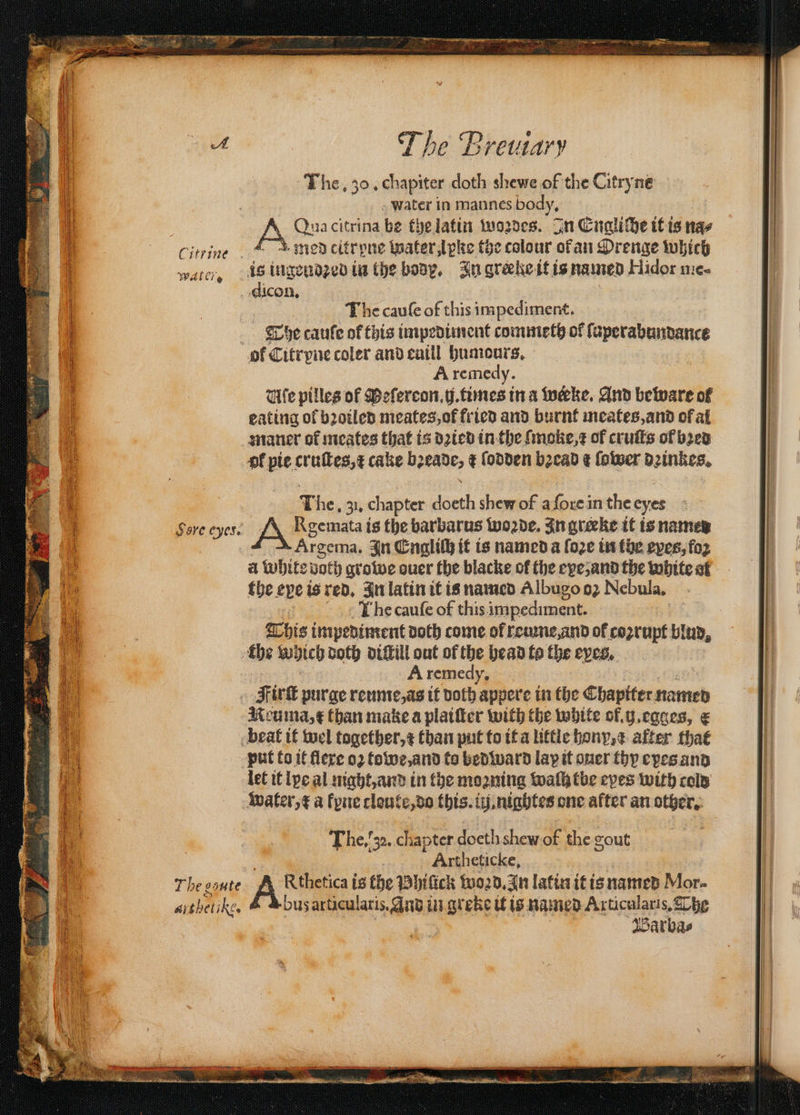 A
The Breuiary
The, 30. chapiter doth shewe of the Citryne
water in mannes body,
AQua citrina be the latin wordes. In Englishe it is na-
Citrine
med citryne water, lyke the colour of an Orenge which
water,
is ingendred in the body. In greeke it is named Hidor me-
dicon,
The cause of this impediment.
The cause of this impediment commeth of superabundance
of Citryne coler and euill humours,
A remedy.
Use pilles of Mesereon. ij. times in a weeke. And beware of
eating of broiled meates, of fried and burnt meates, and of al
maner of meates that is dried in the smoke, & of crusts of bred
of pie crustes, & cake breade, & sodden bread & sower drinkes.
The, 31, chapter doeth shew of a sore in the eyes
Sore eyes.
ARgemata is the barbarus worde. In greeke it is named
Argema. In English it is named a sore in the eyes, for
a white doth growe ouer the blacke of the eye, and the white of
the eye is red. In latin it is named Albugo or Nebula.
The cause of this impediment.
This impediment doth come of reume, and of corrupt blud,
the which doth distill out of the head to the eyes.
A remedy,
First purge reume, as it doth appere in the Chapiter named
Reuma, & than make a plaister with the white of. ij. egges, &
beat it wel together, & than put to it a little hony, & after that
put to it flexe or towe, and to bedward lay it ouer thy eyes and
let it lye al night, and in the morning wash the eyes with cold
water, & a fyne cloute, do this. iij. nightes one after an other.
The, 32. chapter doeth shew of the gout
Artheticke,
The goute
ARthetica is the Phisick word. In latin it is named Mor-
arthetike.
bus articularis. And in greke it is named Articularis. The
Barba-